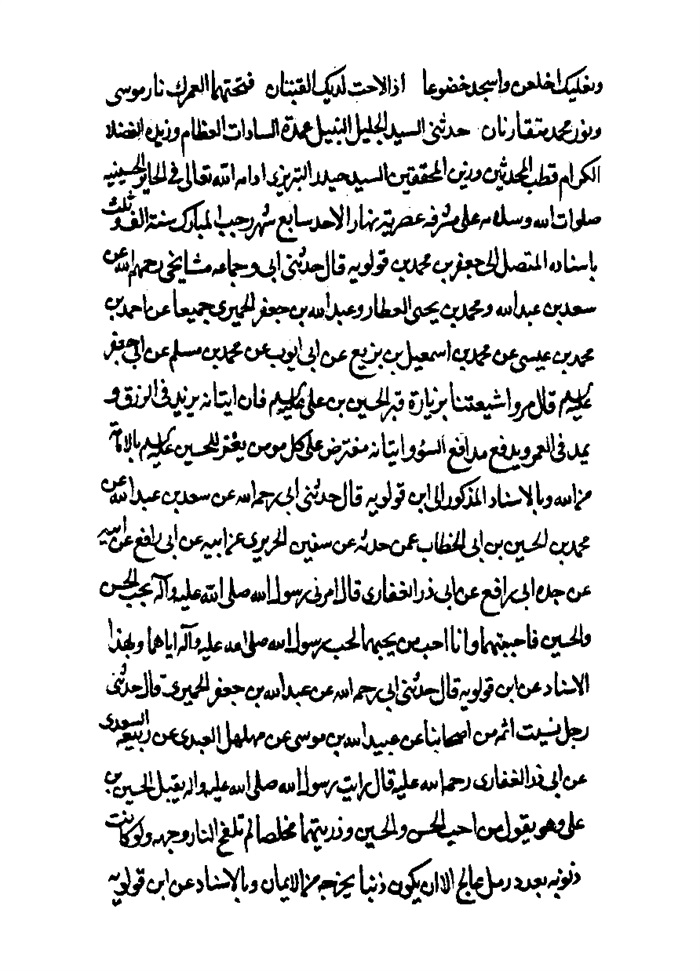 ونعليك اخلعن واسجد خضوعا اذا لاحت لديك القبتان فتحتهما لعمرك نار موسى
ونور محمد متقارنان حدثنى السيد الجليل النبيل عمدة السادات العظام وزبدة الفضلا
الكرام قطب المحدثين وزين المحققين السيد حيدر التبريزى ادامه الله تعالى فى الحاير الحسينيه
صلوات الله وسلامه على مشرفه عصرية نهار الاحد سابع شهر رجب المبارك سنة الف وثلث
باسناده المتصل الى جعفر بن محمد بن قولويه قال حدثنى ابى وجماعه مشايخى رحمهم الله عن
سعد بن عبد الله ومحمد بن يحيى العطار وعبد الله بن جعفر الحميرى جميعا عن احمد بن
محمد بن عيسى عن محمد بن اسمعيل بن بزيع عن ابى ايوب عن محمد بن مسلم عن ابى جعفر
عليه السلام قال مروا شيعتنا بزيارة قبر الحسين بن على عليه السلام فان اتيانه يزيد فى الرزق و
يمد فى العمر ويدفع مدافع السؤ واتيانه مفترض على كل مومن يقر للحسين عليه السلام بالامامة
من الله وبالاسناد المذكور الى ابن قولويه قال حدثنى ابى رحمه الله عن سعد بن عبد الله عن
محمد بن الحسين بن ابى الخطاب عمن حدثه عن سفين الحريرى عن ابيه عن ابى رافع عن ابيه
عن جده ابى رافع عن ابى ذر الغفارى قال امرنى رسول الله صلى الله عليه وآله بحب الحسن
والحسين فاحببتهما وانا احب من يحبهما لحب رسول الله صلى الله عليه وآله اياهما وبهذا
الاسناد عن ابن قولويه قال حدثنى ابى رحمه الله عن عبد الله بن جعفر الحميرى قال حدثنى
رجل نسيت اسمه من اصحابنا عن عبيد الله بن موسى عن مهلهل العبدى عن ربيعه السعدى
عن ابى ذر الغفارى رحمه الله عليه قال رايت رسول الله صلى الله عليه واله يقبل الحسين بن
على وهو يقول من احب الحسن والحسين وذريتهما مخلصا لم تلفح النار وجهه ولو كانت
ذنوبه بعدد رمل عالج الا ان يكون ذنبا يخرجه من الايمان وبالاسناد عن ابن قولويه